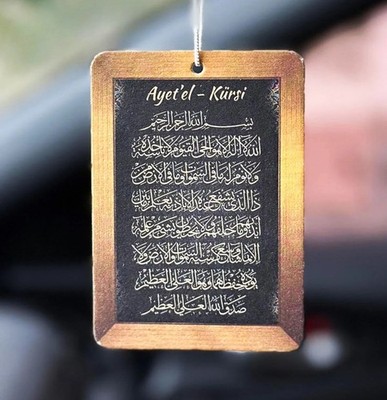 Ayet'el - Kürsi
بسم الله الرحمن الرحيم
الله لا إله إلا هو الحي القيوم لا تأخذه سنة
ولا نوم له ما في السموات وما في الأرض من
ذا الذي يشفع عنده إلا بإذنه يعلم ما بين
أيديهم وما خلفهم ولا يحيطون بشيء من علمه
إلا بما شاء وسع كرسيه السموات والأرض ولا
يؤده حفظهما وهو العلي العظيم
صدق الله العلي العظيم